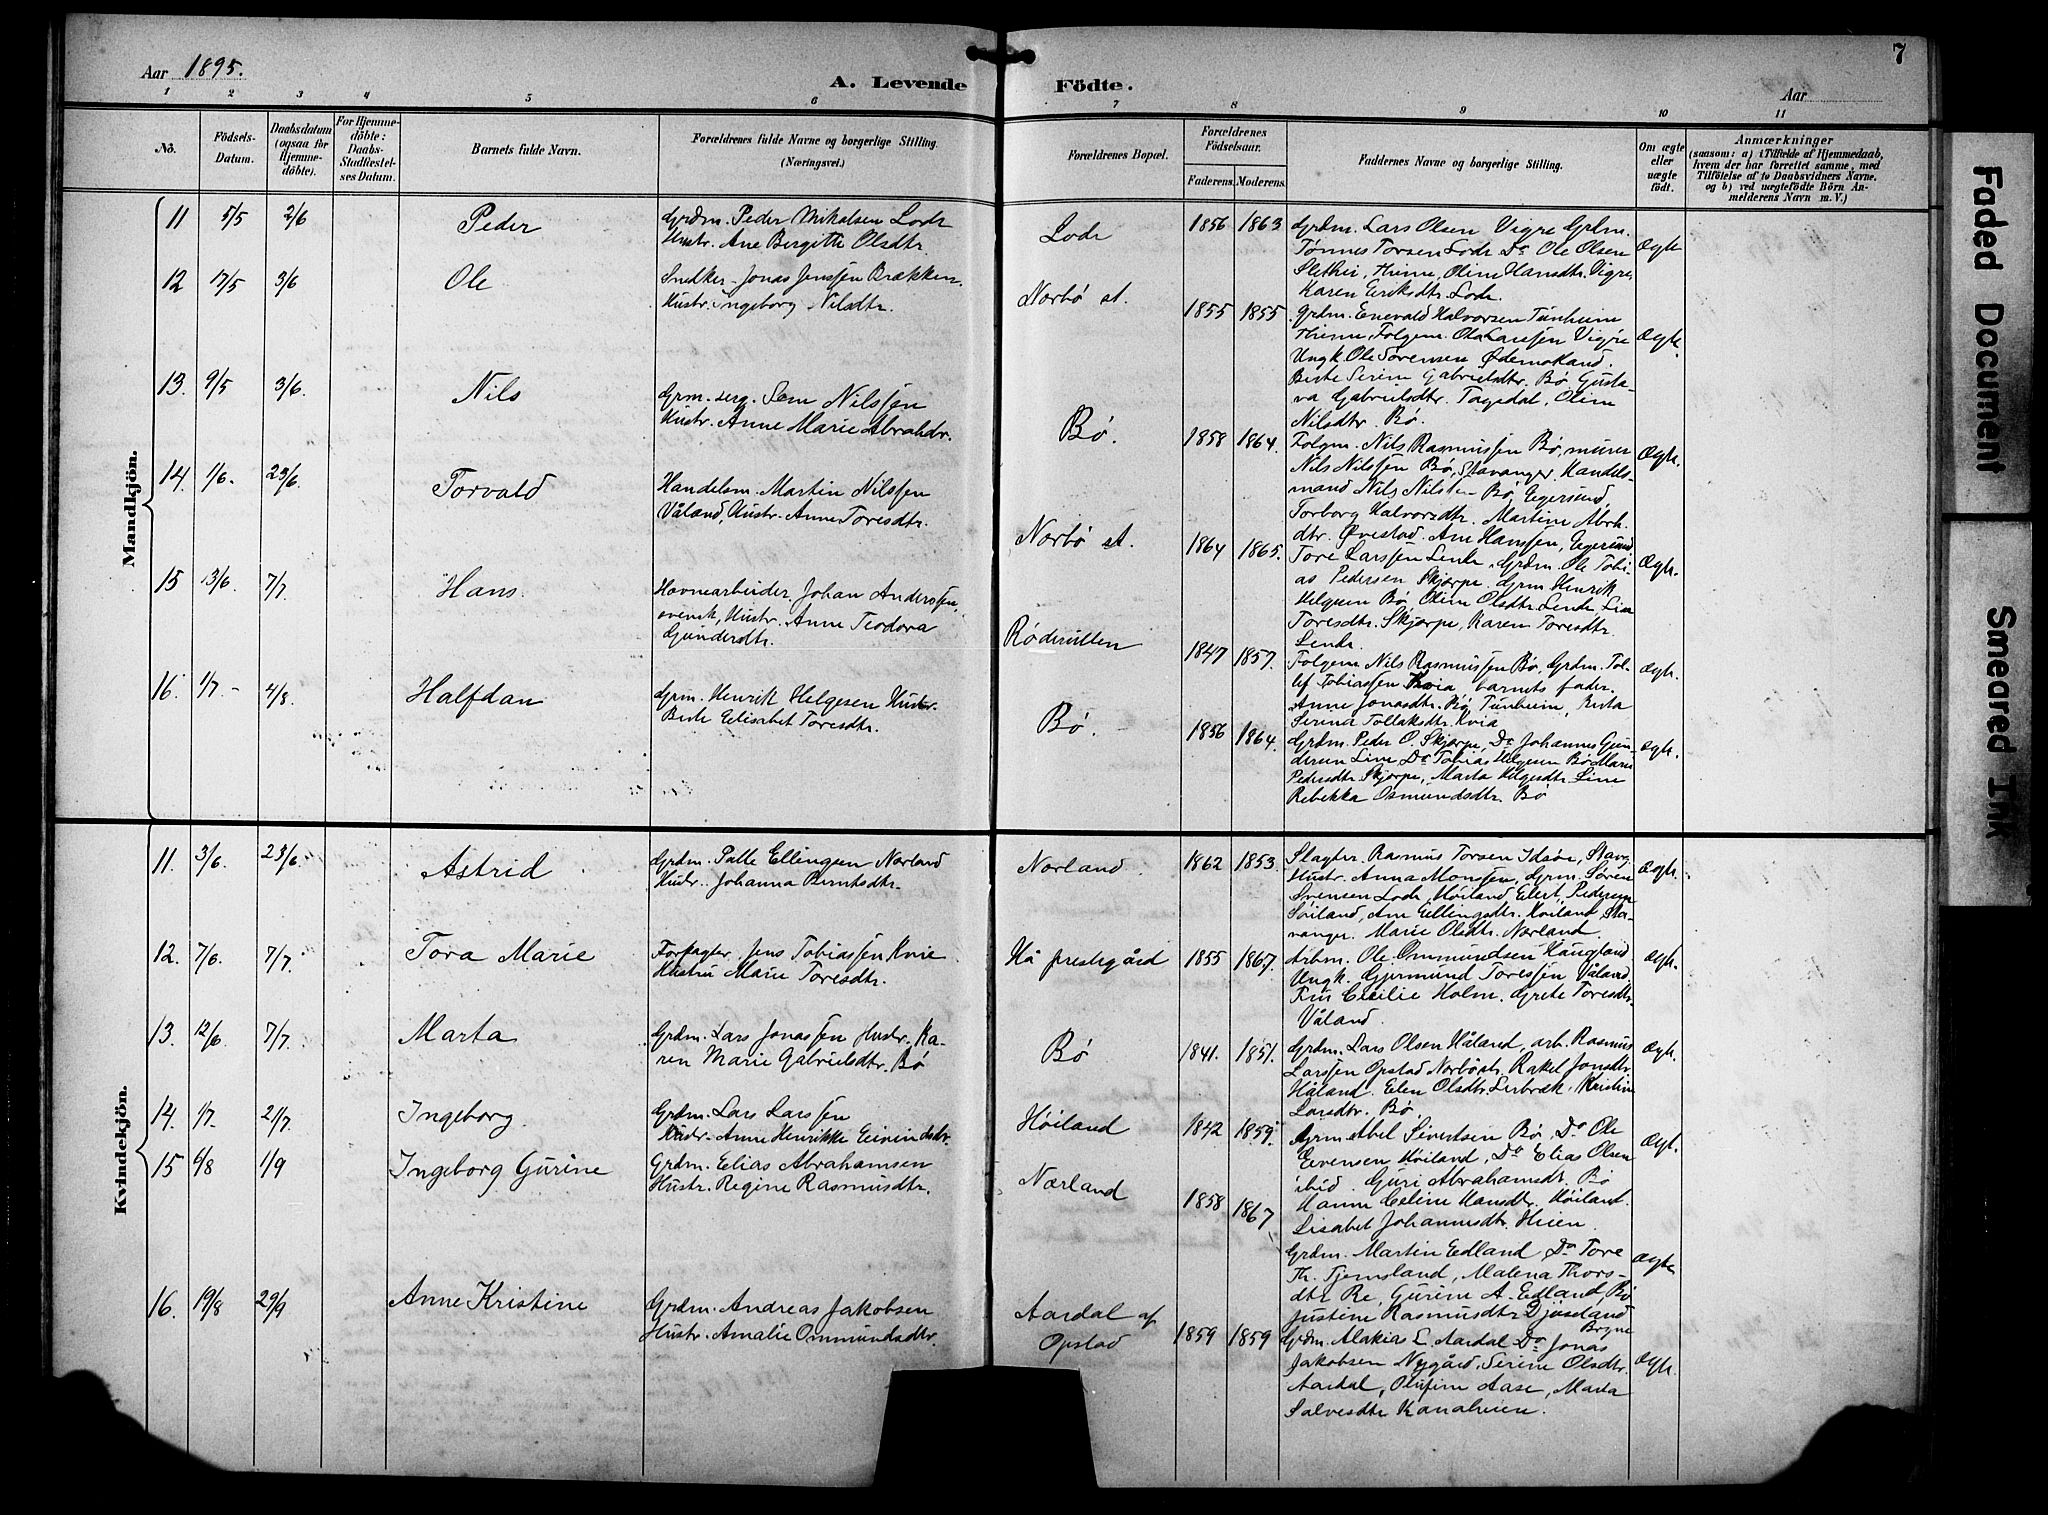 Aar 1895.
A. Levende Födte.
7
Aar
1 2 3 4 5 6 7 8 9 10 11
Nô.
Födsels-Datum.
Daabsdatum (ogsaa for Hjemmedöbte).
For Hjemmedöbte: Daabs-Stadfæstelses Datum.
Barnets fulde Navn.
Forældrenes fulde Navne og borgerlige Stilling. (Næringsvei.)
Forældrenes Bopæl.
Forældrenes Födselsaar.
Faderens. Moderens.
Faddernes Navne og borgerlige Stilling.
Om ægte eller uægte födt.
Anmærkninger
(saasom: a) i Tilfælde af Hjemmedaab, hvem der har forrettet samme, med Tilföielse af to Daabsvidners Navne, og b) ved uægtefödte Börn Anmelderens Navn m. V.)
Mandkjön.
11 5/5 2/6 Peder
Grdm. Peder Mikalsen Lode
Hustr. Ane Bergitte Olsdtr
Lode 1856 1863
Grdm. Lars Olsen Vigre Grdm.
Tønnes Torsen Lode Do Ole Olsen
Slethei, Hime, Oline Hansdtr. Vigre,
Karen Eriksdtr. Lode.
Ægte
12 17/5 3/6 Ole
Snedker Jonas Jenssen Brækken.
Hustr. Ingeborg Nilsdtr.
Norbø st. 1855 1855
Grdm. Enevald Halvorsen Tunheim
Hime, Folgem. Ola Larssen Vigre
Ungk. Ole Sørensen Ødemotland.
Berte Serine Gabrielsdtr. Bø, Gusta-
va Gabrielsdtr. Tagedal, Oline
Nilsdtr. Bø.
Ægte.
13. 9/5 3/6. Nils
Grm. serg. Sem Nilssen
Hustr. Anne Marie Abrahdtr.
Bø. 1858 1864.
Folgm. Nils Rasmussen Bø, murer
Nils Nilssen Bø, Stavanger, Handels-
mand Nils Nilsen Bø, Egersund
Torborg Halvorsdtr. Martine Abrh.
dtr. Øvestad. Ane Hanssen, Egersund
Ægte.
14. 1/6. 23/6 Torvald
Handelsm. Martin Nilssen
Våland, Hustr. Anne Toresdtr.
Norbø st. 1864 1865.
Tore Larssen Lende, Grdm. Ole Tobi-
as Pedersen Skjærpe. Grm Henrik
Helgesen Bø, Oline Olsdtr. Lende, Line
Toresdtr. Skjærpe, Karen Toresdtr.
Lende.
Ægte.
15 13/6. 7/7. Hans.
Havnearbeider Johan Anderssen,
svensk, Hustr. Anne Teodora
Gundersdtr.
1847 1857.
Folgem Nils Rasmussen Bø, Grdm. Tol-
lef Tobiassen Kvia, barnets fader.
Anne Jonasdtr. Bø, Tunheim,
Serena Tollaksdtr. Kvia
Ægte.
16. 1/7. 4/8. Halfdan
Grm. Henrik Helgesen Hustr.
Berte Elisabet Toresdtr.
Bø. 1856 1864.
Grdm. Peder O. Skjærpe, Do Johannes Gun-
dersen Line, Do Tobias Helgesen Bø Marie
Pedersdtr. Skjærpe, Marta Helgesdtr. Line
Rebekka Osmundsdtr. Bø
Ægte.
Kvindekjön.
11. 3/6. 23/6. Astrid
Grdm. Palle Ellingsen Nørland
Hustr. Johanna Berntsdtr.
Nørland. 1862 1853.
Slagter. Rasmus Torsen Idsøe, Stavg.
Hustr. Anna Monssen, Grm. Søren
Svensen Lode, Høiland, Elert. Pedersen
Søiland, Ane Ellingsdtr. Høiland, Sta-
vanger. Marie Olsdtr. Nærland.
Ægte.
12. 7/6. 7/7. Tora Marie
Forpagter. Jens Tobiassen Kvie
Hustru Marie Toresdtr.
Hå prestegård 1855 1867.
Arbm. Ole Ommundsen Haugland
Ungk. Gjermund Toressen Våland.
Frü Cecilie Holm. Grete Toresdtr.
Våland.
Ægte.
13. 12/6. 7/7. Marta
Grdm. Lars Jonassen Hustr. Ka-
ren Marie Gabrielsdtr. Bø
Bø 1841. 1851.
Grdm. Lars Olsen Håland, arb. Rasmus
Larssen Opstad Norbøst. Rakel Jonsdtr.
Håland. Elen Olsdtr. Lerbræk. Kristine
Larsdtr. Bø.
Ægte.
14. 1/7. 21/7. Ingeborg
Grdm. Lars Larssen
Hustr. Anne Henrikke Eivindsdtr.
Høiland 1842 1859.
Grm. Abel Sivertsen Bø, Do Ole
Eivensen Høiland, Do Elias Olsen
ibid. Guri Abrahamsdt. Bø
Hanne Celine Hansdtr. Høiland.
Lisabet Johannesdtr. Hein.
Ægt.
15 6/8 1/9 Ingeborg Gurine
Grdm. Elias Abrahamsen
Hustr. Regine Rasmusdtr.
Nærland 1858 1867
Grdm. Martin Edland Do Tore
Th. Tjemsland, Malena Thors-
dtr Re, Gurine A. Edland Bø
Justine Rasmusdtr Djuseland
Bryne
Ægte
16. 19/8 29/9 Anne Kristine
Grdm. Andreas Jakobsen
Hustr. Amalie Ommundsdtr.
Aardal af
Opstad 1859 1859
Grdm. Alakias L. Aardal Do Jonas
Jakobsen Nygård, Serine Olsdtr.
Aardal, Olufine Aase, Marta
Salvesdtr Kanalheien.
Ægte.
Faded Document
Smeared Ink